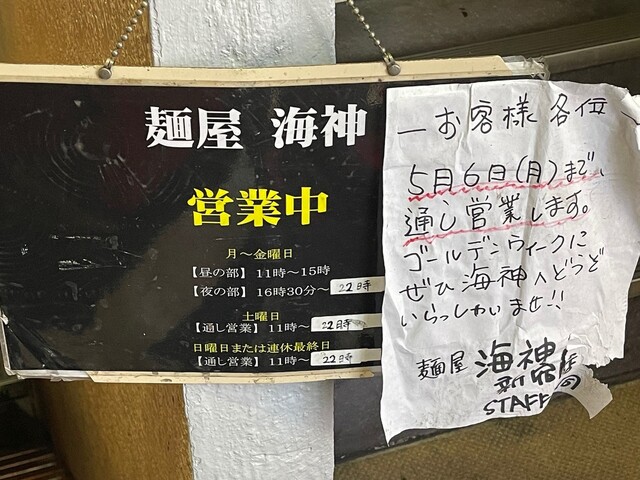 麺屋 海神
営業中
月〜金曜日
【昼の部】11時〜15時
【夜の部】16時30分〜 22時
土曜日
【通し営業】11時〜 22時
日曜日または連休最終日
【通し営業】11時〜 22時
― お客様各位 ―
5月6日(月)まで、
通し営業します。
ゴールデンウィークに
ぜひ海神へどうぞ
いらっしゃいませ!!
麺屋 海神
新宿店
STAFF一同